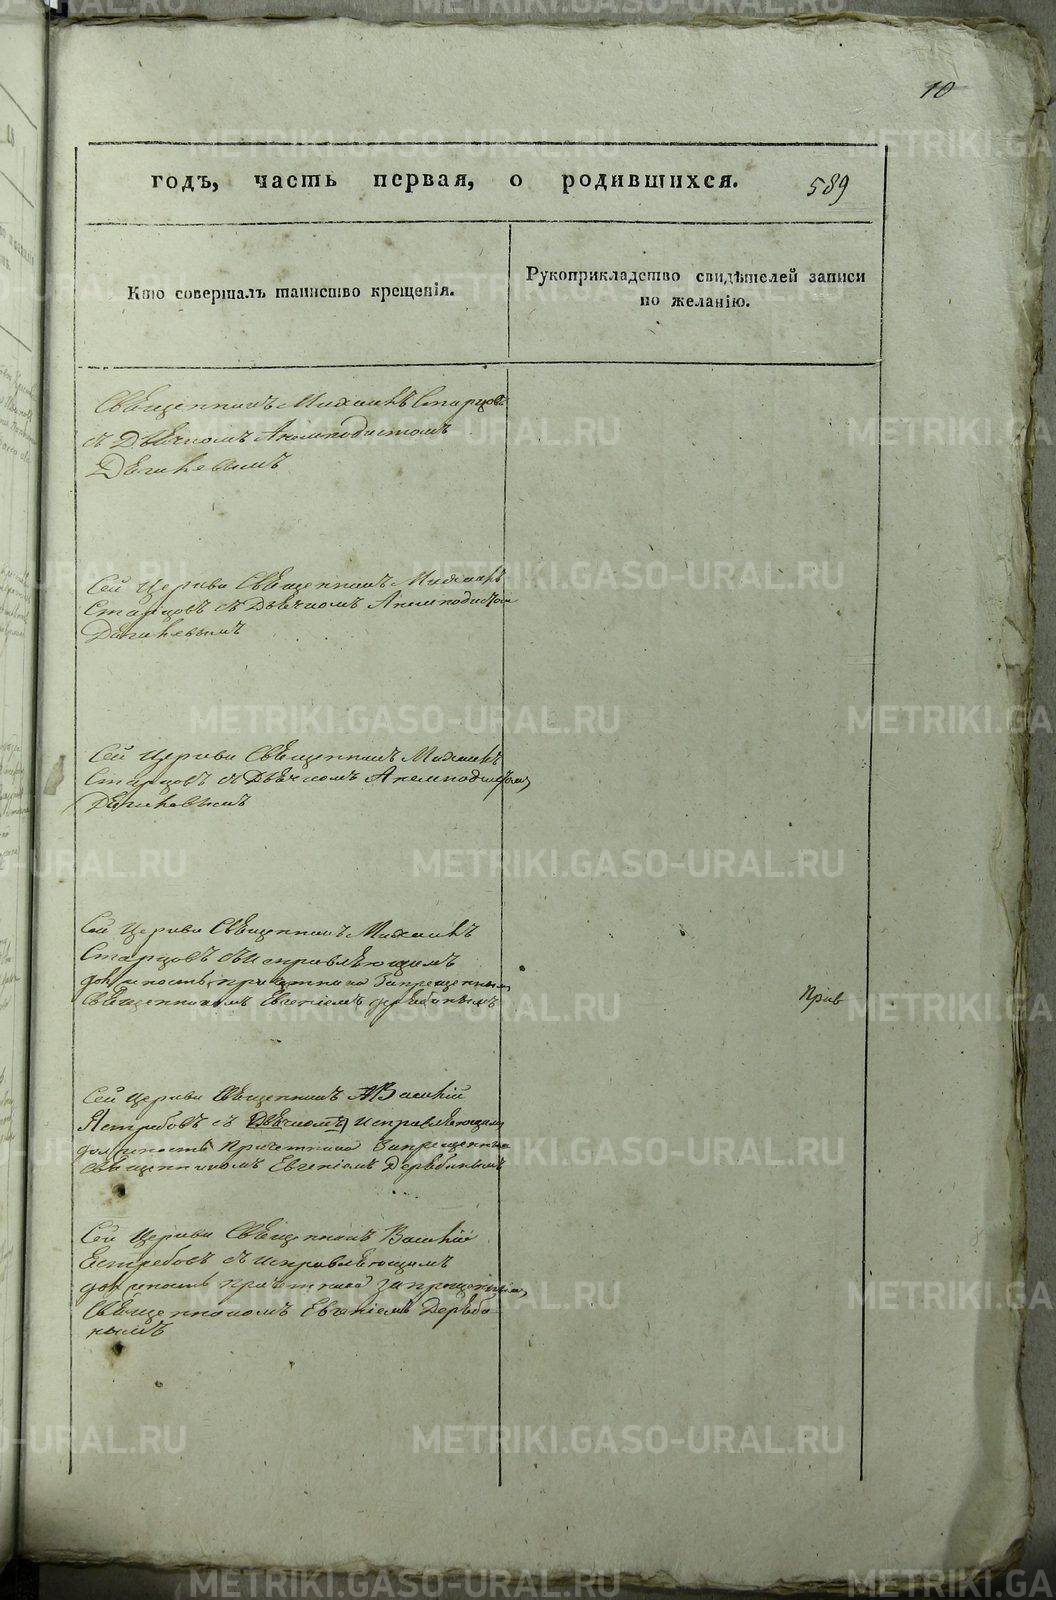 10
годъ, часть первая, о родившихся. 589
Кто совершалъ таинство крещенія.
Рукоприкладство свидѣтелей записи
по желанію.
Священникъ Михаилъ Старцовъ
съ Дьячкомъ Анемподистомъ
Сей Церкви Священникъ Михаилъ
Старцовъ съ Дьячкомъ Анемподистом
Сей Церкви Священникъ Михаилъ
Старцовъ съ Дьячкомъ Анемподистомъ
Сей Церкви Священникъ Михаилъ
Старцовъ съ исправляющимъ
должность причетника Запрещеннымъ
Священникомъ Евгеніемъ Дерябинымъ
Прив
Сей Церкви Священникъ Василій
Ястребовъ съ Дьячкомъ исправляющимъ
должность Причетника Запрещеннымъ
Священникомъ Евгеніемъ Дерябинымъ
Сей Церкви Священникъ Василій
Естребовъ съ исправляющимъ
должность причетника запрещеннымъ
Священникомъ Евгеніемъ Деряби
нымъ
METRIKI.GASO-URAL.RU